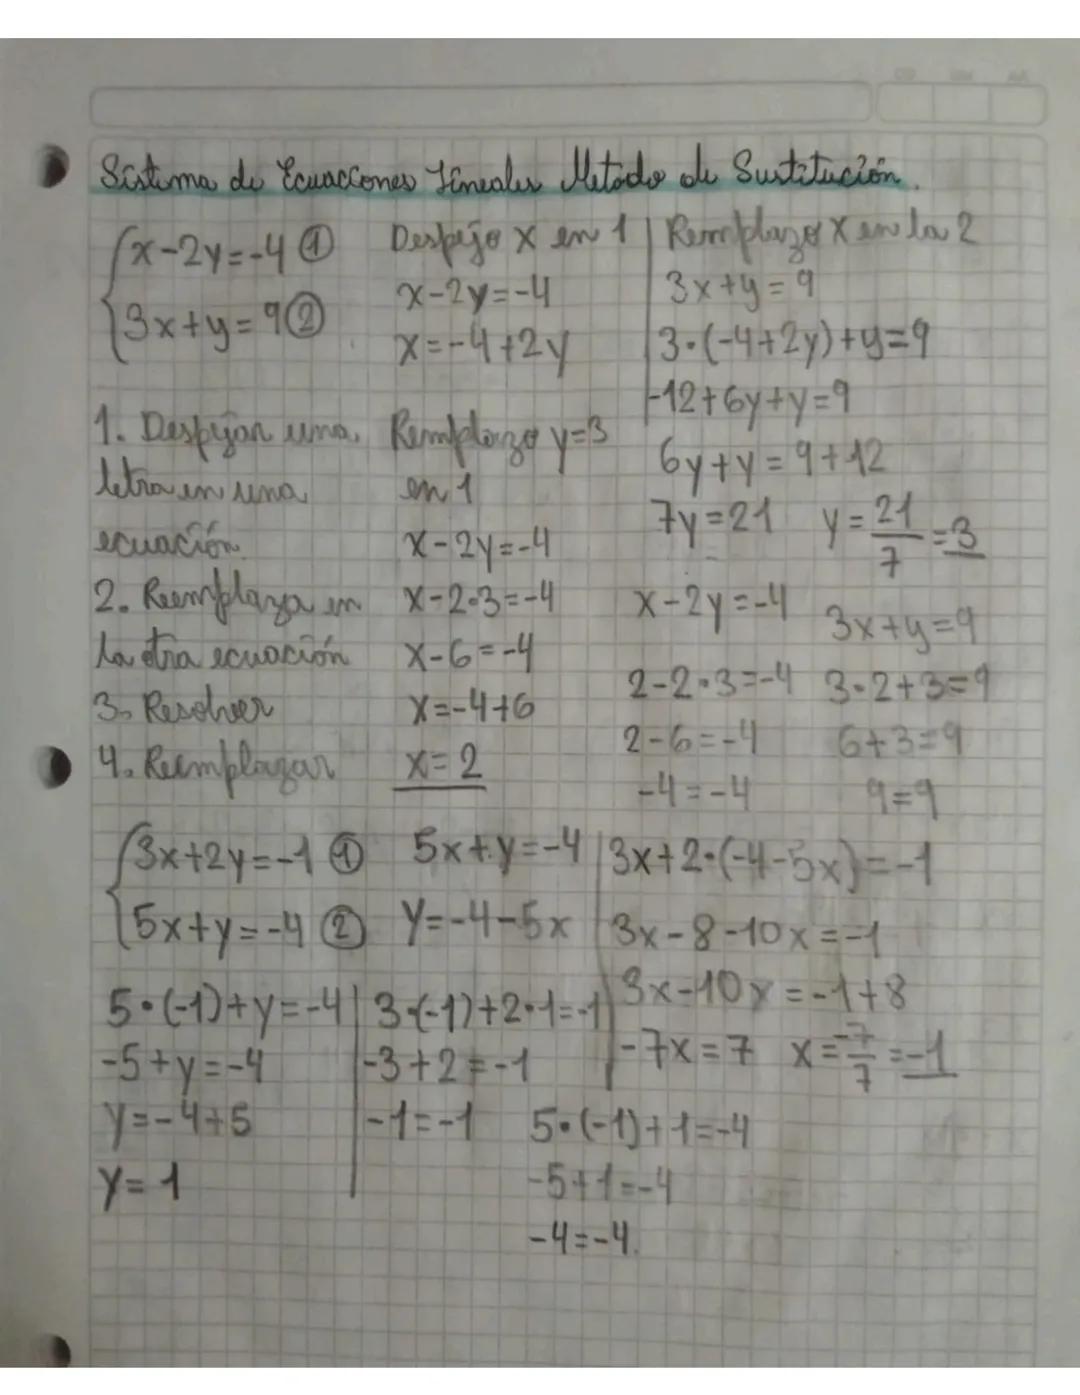 Sistema de Ecuacciones Lineales Metodo de Sustitución.
{x-2y=-4 ①
{3x+y=9②
Despejo x en 1
x-2y=-4
x=-4+2y
Remplazo x en la 2
3x+y=9
3·(-4+2y)+y=9
-12+6y+y=9
6y+y=9+12
7y=21 y=21/7=3
1. Despejar una
letra en una
ecuación.
2. Reemplaza en
la otra ecuación
3. Resolver
4. Reemplazar
Remplazo y=3
en 1
x-2y=-4
x-2·3=-4
x-6=-4
x=-4+6
x=2
x-2y=-4
2-2·3=-4
2-6=-4
-4=-4
3x+y=9
3·2+3=9
6+3=9
9=9
{3x+2y=-1 ①
{5x+y=-4 ②
5x+y=-4
y=-4-5x
3x+2·(-4-5x)=-1
3x-8-10x=-1
3x-10x=-1+8
-7x=7 x=-7/7=-1
5·(-1)+y=-4
-5+y=-4
y=-4+5
y=1
3·(-1)+2·1=-1
-3+2=-1
-1=-1
5·(-1)+1=-4
-5+1=-4
-4=-4.